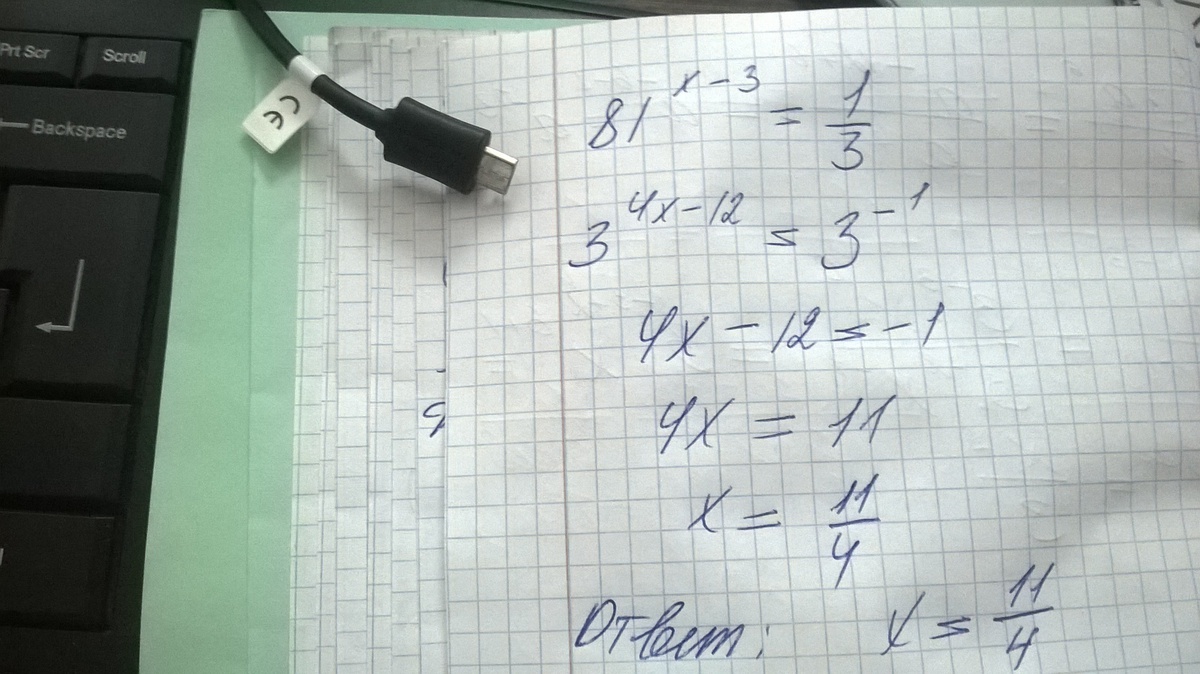 Prt Scr
Scroll
Backspace
CE
81^(x-3) = 1/3
3^(4x-12) = 3^(-1)
4x - 12 = -1
4x = 11
x = 11/4
Ответ: x = 11/4